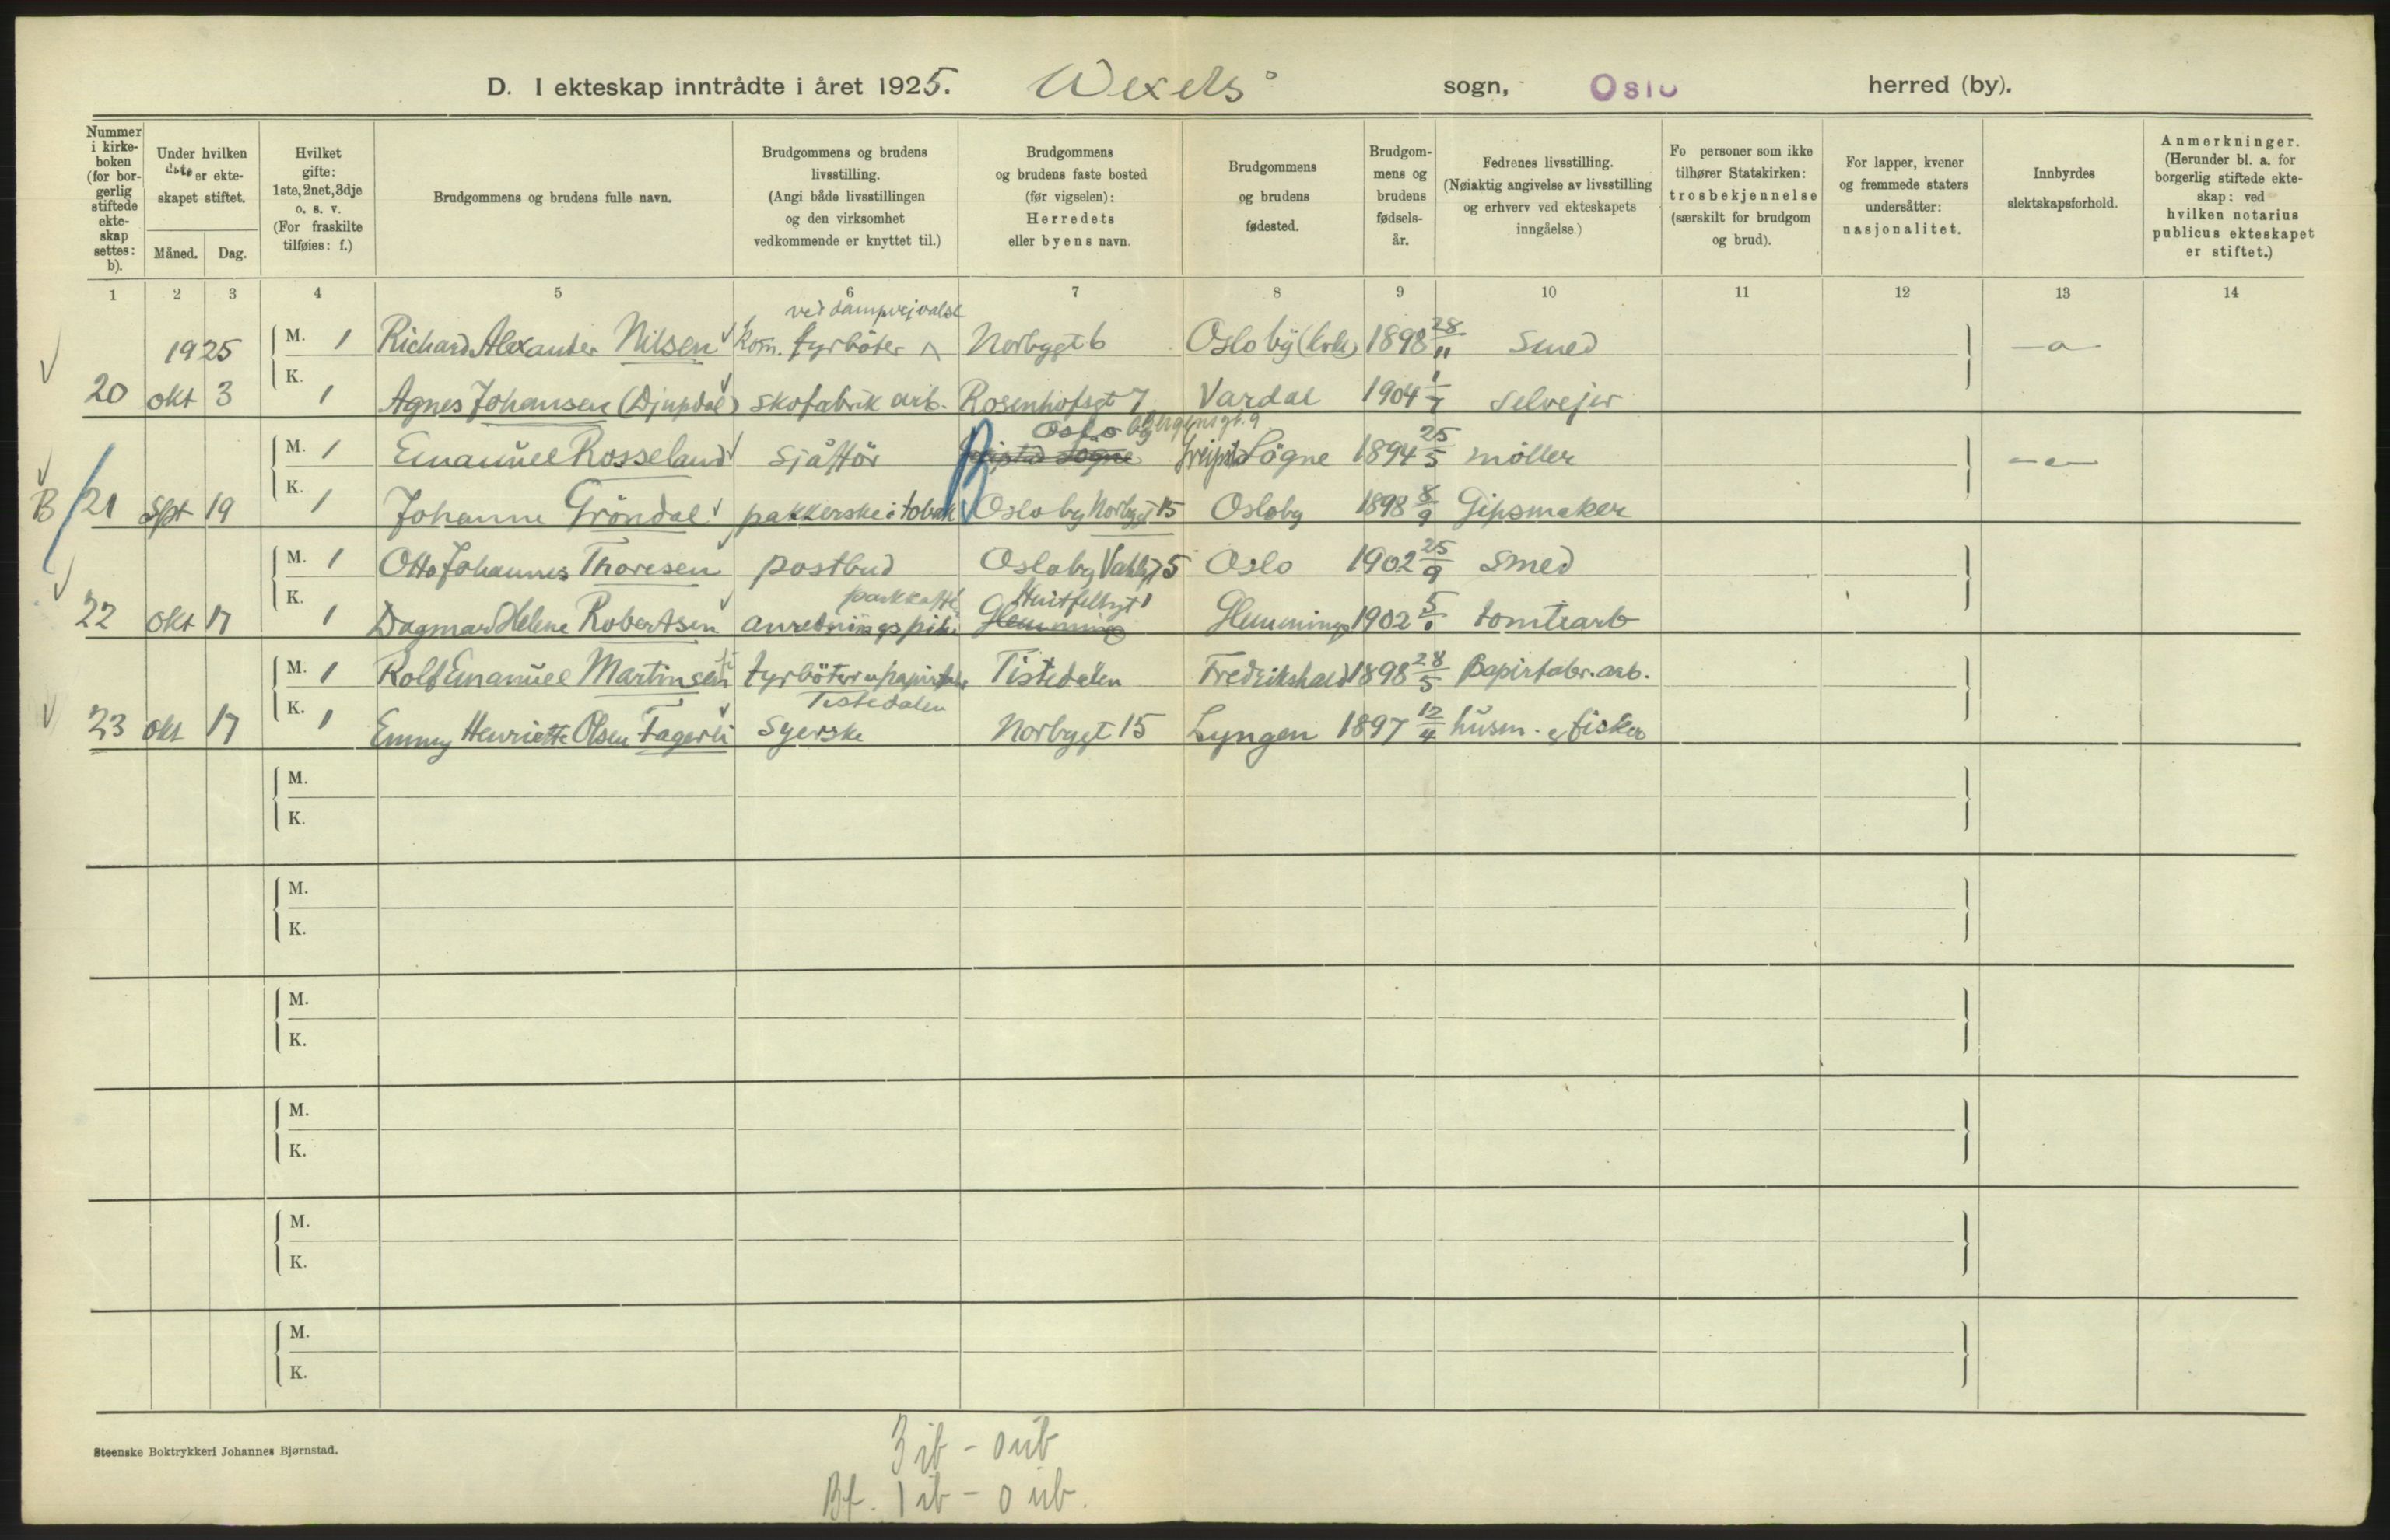 D. I ekteskap inntrådte i året 1925. Wexels sogn, Oslo herred (by).
Nummer i kirke-boken (for bor-gerlig stiftede ekte-skap settes: b).
Under hvilken dato er ekte-skapet stiftet.
Måned. Dag.
Hvilket gifte: 1ste, 2net, 3dje o. s. v. (For fraskilte tilføies: f.)
Brudgommens og brudens fulle navn.
Brudgommens og brudens livsstilling. (Angi både livsstillingen og den virksomhet vedkommende er knyttet til.)
Brudgommens og brudens faste bosted (før vigselen): Herredets eller byens navn.
Brudgommens og brudens fødested.
Brudgom-mens og brudens fødsels-år.
Fedrenes livsstilling. (Nøiaktig angivelse av livsstilling og erhverv ved ekteskapets inngåelse.)
Fo personer som ikke tilhører Statskirken: trosbekjennelse (særskilt for brudgom og brud).
For lapper, kvener og fremmede staters undersåtter: nasjonalitet.
Innbyrdes slektskapsforhold.
Anmerkninger. (Herunder bl. a. for borgerlig stiftede ekte-skap: ved hvilken notarius publicus ekteskapet er stiftet.)
1 2 3 4 5 6 7 8 9 10 11 12 13 14
ved dampvejvalse
1925 M. 1 Richard Alexander Nilsen Kom. fyrböter Norbygt 6 Oslo by (krk) 1898 28/11 Smed
20 okt 3 K. 1 Agnes Johansen (Djupdal) skofabrik arb. Rosenhofsgt 7 Vardal 1904 1/7 selvejer
Oslo by Bergensgt. 9
M. 1 Emanuel Rosseland sjåfför Søgne 1894 25/5 møller
B 21 Spt 19 K. 1 Johanne Gröndal pakkerske i tobak Oslo by Norbygt 15 Osloby 1898 8/9 Gipsmaker
M. 1 Otto Johannes Thoresen postbud Oslo by Vahlsgt 5 Oslo 1902 25/9 Smed
parkkaffé Huitfeltsgt
22 okt 17 K. 1 Dagmar Helene Robertsen anretningspike Glemminge Glemminge 1902 tomtearb
M. 1 Rolf Emanuel Martinsen fyrböter Tistedalen Fredrikshald 1898 28/5 Papirfabr. arb.
Tistedalen
23 okt 17 K. 1 Emmy Henriette Olsen Fagerli Syerske Norbygt 15 Lyngen 1897 12/4 husm. & fisker
M.
K.
M.
K.
M.
K.
M.
K.
M.
K.
M.
K.
Steenske Boktrykkeri Johannes Bjørnstad.
3 ib - 0 ub
Bf. 1 ib - 0 ub.